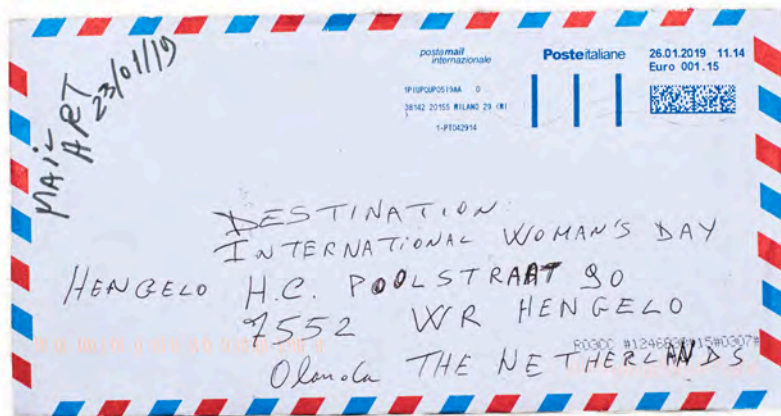 MAIL
ART
23/01/19
postamail
internazionale
Posteitaliane
26.01.2019 11.14
Euro 001.15
0
38142 20155 MILANO 29 (MI
)
1-PT042914
DESTINATION:
INTERNATIONAL WOMAN'S DAY
HENGELO H.C. POOLSTRAAT 90
7552 WR HENGELO
Olanda THE NETHERLANDS